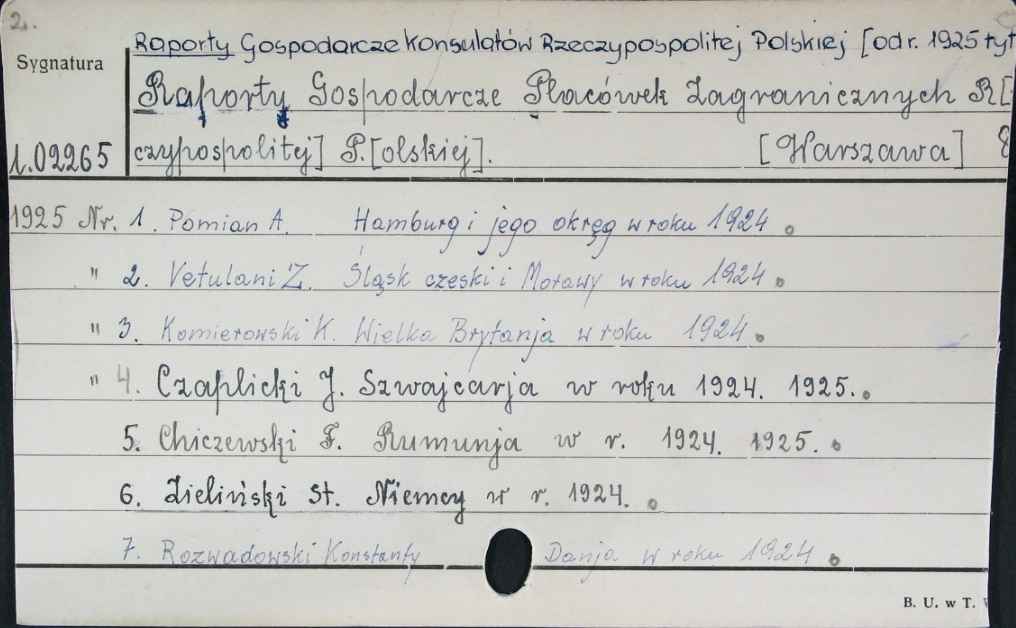 2.
Raporty Gospodarcze Konsulatów Rzeczypospolitej Polskiej [od r. 1925 tyt
Sygnatura
Raporty Gospodarcze Placówek Zagranicznych R[
1.02265
czypospolitej] P.[olskiej]. [Warszawa] 8
1925 Nr. 1. Pomian A. Hamburg i jego okręg w roku 1924
" 2. Vetulani Z. Śląsk czeski i Morawy w roku 1924
" 3. Komierowski K. Wielka Brytanja w roku 1924
" 4. Czaplicki J. Szwajcarja w roku 1924. 1925.
5. Chiczewski F. Rumunja w r. 1924. 1925.
6. Zieliński St. Niemcy w r. 1924.
7. Rozwadowski Konstanty Danja w roku 1924
B. U. w T.